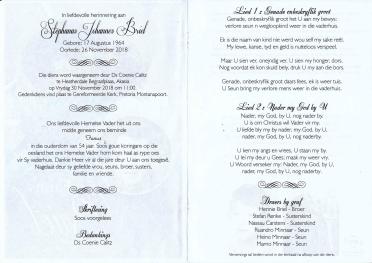 In liefdevolle herinnering aan
Stephanus Johannes Briel
Gebore: 17 Augustus 1964
Oorlede: 26 November 2018
Die diens word waargeneem deur Ds Coenie Calitz
te Heatherdale Begrafplaas, Akasia
op Vrydag 30 November 2018 om 11:00.
Gedenkdiens vind plaas te Gereformeerde Kerk, Pretoria Montanapoort.
Ons liefdevolle Hemelse Vader het uit ons
midde geneem ons beminde
Fanus
in die ouderdom van 54 jaar. Soos goue koringare op die
oesland het ons Hemelse Vader hom kom haal as rype oes
vir Sy vaderhuis. Dankie Heer vir al die jare deur U aan ons toegesê.
Nagelaat deur sy geliefde vrou, seuns, broer, susters,
familie en vriende.
Skriflesing
Soos voorgelees
Bedankings
Ds Coenie Calitz
Lied 1: Genade onbeskryflik groot
Genade, onbeskryflik groot het U aan my bewys:
verlore seun n wegloopkind weer in die vaderhuis.
Ek is die naam van kind nie werd wou self my sake reël.
My lewe, kanse, tyd en geld is nutteloos verspeel.
Maar U sien ver, oneindig ver, U sien my honger, dors.
Nog voordat ek kon skuld bely, druk U my aan die bors.
Genade, onbeskryflik groot daars fees, ek is weer tuis.
U Seun bring my verlore mens weer in die vaderhuis.
Lied 2: Nader my God by U
Nader, my God, by U, nader by U.
U is om Christus wil Vader vir my.
U liefde bly my by nader, my God, by U,
nader, my God, by U, nog naderby.
U ken my angs en vrees, U staan my by.
U lei my deur u Gees; maak my weer vry.
U Woord verseker my: Nader, my God, by U,
nader, my God, by U, nog naderby.
Draers by graf
Hennie Briel - Broer
Stefan Renke - Susterskind
Nassau Carstens - Susterskind
Ruandro Minnaar - Seun
Heino Minnaar - Seun
Marno Minnaar - Seun